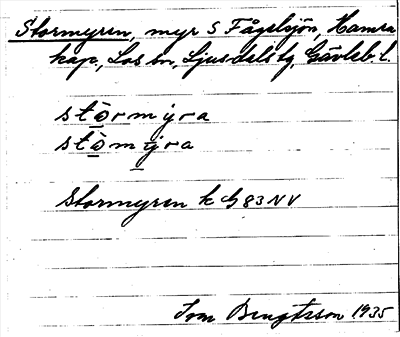 Stormyren, myr S Fågelsjön, Hamra
kap, Los sn, Ljusdals tg, Gävleb. l.
stòrmyra
stòmyra
Stormyren k G 83 NV
Tom Bengtsson 1935